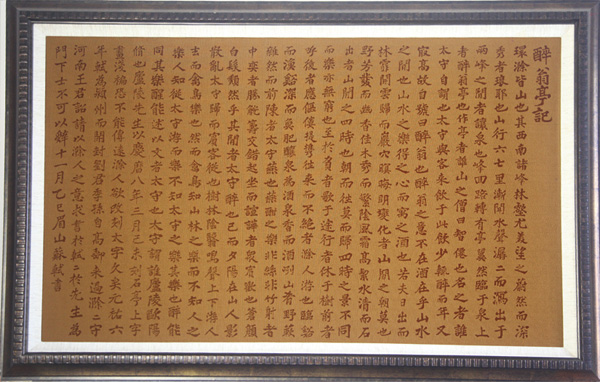 醉翁亭記
環滁皆山也其西南諸峰林壑尤美望之蔚然而深
秀者琅耶也山行六七里漸聞水聲潺潺而瀉出于
兩峰之間者釀泉也峰回路轉有亭翼然臨于泉上
者醉翁亭也作亭者誰山之僧曰智僊也名之者誰
太守自謂也太守與客來飲于此飲少輒醉而年又
最高故自號曰醉翁也醉翁之意不在酒在乎山水
之間也山水之樂得之心而寓之酒也若夫日出而
林霏開雲歸而巖穴暝晦明變化者山間之朝莫也
野芳發而幽香佳木秀而繁陰風霜高潔水清而石
出者山間之四時也朝而往莫而歸四時之景不同
而樂亦無窮也至於負者歌于塗行者休于樹前者
呼後者應傴僂提攜往來而不絕者滁人游也臨谿
而漁谿深而魚肥釀泉為酒泉香而酒冽山肴野蔌
雜然而前陳者太守燕也燕酣之樂非絲非竹射者
中奕者勝觥籌交錯起坐而諠譁者眾賓歡也蒼顏
白髮頹然乎其間者太守醉也已而夕陽在山人影
散亂太守歸而賓客從也樹林陰翳鳴聲上下游人
去而禽鳥樂也然而禽鳥知山林之樂而不知人之
樂人知從太守游而樂不知太守之樂其樂也醉能
同其樂醒能述以文者太守也太守謂誰廬陵歐陽
脩也廬陵先生以慶曆八年三月己未刻石亭上字
畫淺褊恐不能傳遠滁人欲改刻大字久矣元祐六
年軾為潁州而開封劉君季孫自高郵來過滁二守
河南王君詔請以滁人之意求書於軾二於先生為
門下士不可以辭十一月乙巳眉山蘇軾書